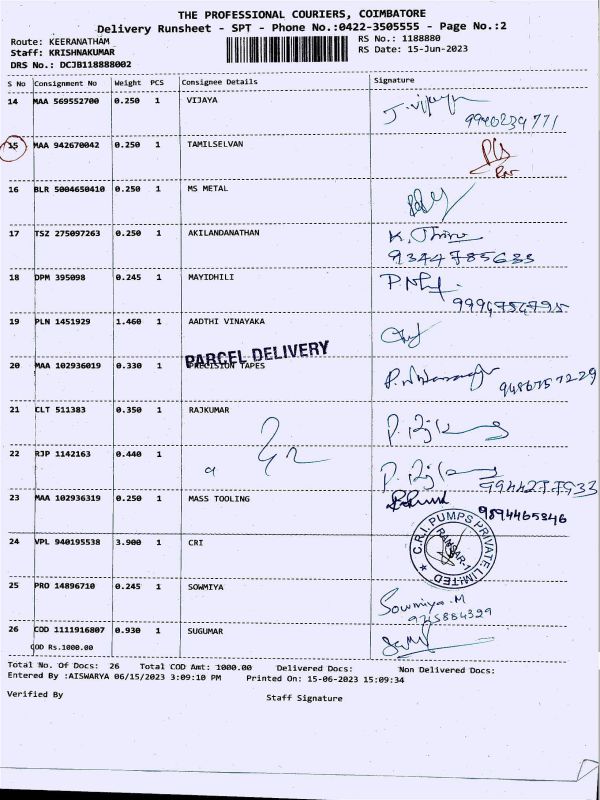 THE PROFESSIONAL COURIERS, COIMBATORE
Delivery Runsheet - SPT - Phone No.:0422-3505555 - Page No.:2
Route: KEERANATHAM RS No.: 1188880
Staff: KRISHNAKUMAR RS Date: 15-Jun-2023
DRS No.: DCJB118888002
S No Consignment No Weight PCS Consignee Details Signature
14 MAA 569552700 0.250 1 VIJAYA J. vijaya
9940239771
15 MAA 942670042 0.250 1 TAMILSELVAN
16 BLR 5004650410 0.250 1 MS METAL
17 TSZ 275097263 0.250 1 AKILANDANATHAN K. Thiru
9344785633
18 DPM 395098 0.245 1 MAYIDHILI
9994754795
19 PLN 1451929 1.460 1 AADTHI VINAYAKA
PARCEL DELIVERY
20 MAA 102936019 0.330 1 PRECISION TAPES
9486757229
21 CLT 511383 0.350 1 RAJKUMAR
22 RJP 1142163 0.440 1
9944277933
23 MAA 102936319 0.250 1 MASS TOOLING
9894465346
24 VPL 940195538 3.900 1 CRI
C.R.I. PUMPS PRIVATE LIMITED
25 PRO 14896710 0.245 1 SOWMIYA Sowmiya.M
26 COD 1111916807 0.930 1 SUGUMAR
COD Rs.1000.00
Total No. Of Docs: 26 Total COD Amt: 1000.00 Delivered Docs: Non Delivered Docs:
Entered By :AISWARYA 06/15/2023 3:09:10 PM Printed On: 15-06-2023 15:09:34
Verified By Staff Signature